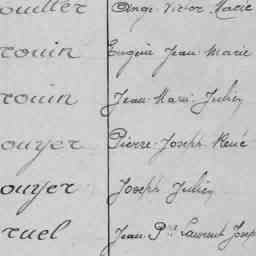 ouiller Ange Victor Marie
rouin Eugène Jean Marie
rouin Jean Marie Julien
ouyer Pierre Joseph René
ouyer Joseph Julien
ruel Jean Laurent Josep